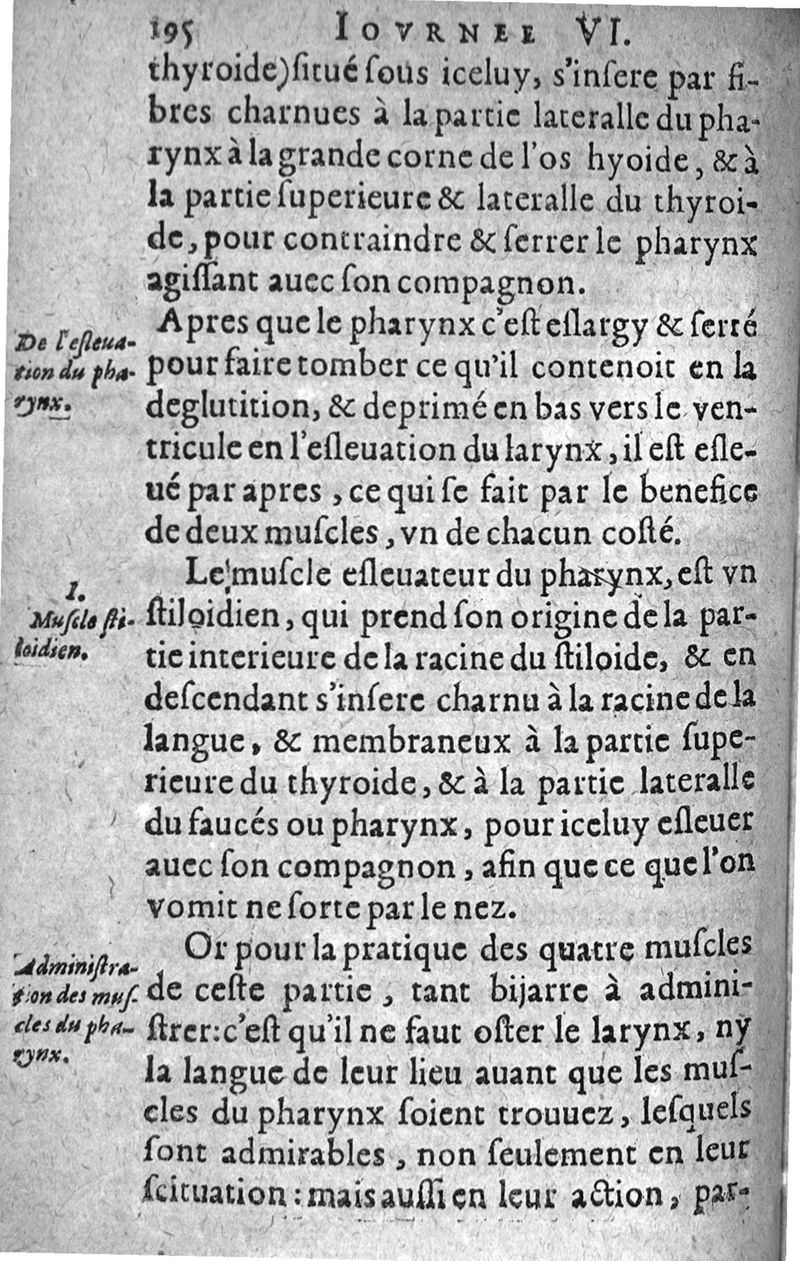 195 IOVRNEE VI.
thyroide)ſitué ſous iceluy, s'inſere par fi-
bres charnues à la partie lateralle du pha-
rynx à la grande corne de l'os hyoide, & à
la partie ſuperieure & lateralle du thyroi-
de, pour contraindre & ſerrer le pharynx
agiſſant auec ſon compagnon.
De l'eſleua-
tion du pha-
rynx.
Apres que le pharynx c'eſt eſlargy & ſerré
pour faire tomber ce qu'il contenoit en la
deglutition, & deprimé en bas vers le ven-
tricule en l'eſleuation du larynx, il eſt eſle-
ué par apres, ce qui ſe fait par le benefice
de deux muſcles, vn de chacun coſté.
I.
Muſcle ſti-
loidien.
Le muſcle eſleuateur du pharynx, eſt vn
ſtiloidien, qui prend ſon origine de la par-
tie interieure de la racine du ſtiloide, & en
deſcendant s'inſere charnu à la racine de la
langue, & membraneux à la partie ſupe-
rieure du thyroide, & à la partie lateralle
du faucés ou pharynx, pour iceluy eſleuer
auec ſon compagnon, afin que ce que l'on
vomit ne ſorte par le nez.
Adminiſtra-
tion des muſ-
cles du pha-
rynx.
Or pour la pratique des quatre muſcles
de ceſte partie, tant bijarre à admini-
ſtrer: c'eſt qu'il ne faut oſter le larynx, ny
la langue de leur lieu auant que les muſ-
cles du pharynx ſoient trouuez, leſquels
ſont admirables, non ſeulement en leur
ſcituation: mais auſſi en leur action, par-